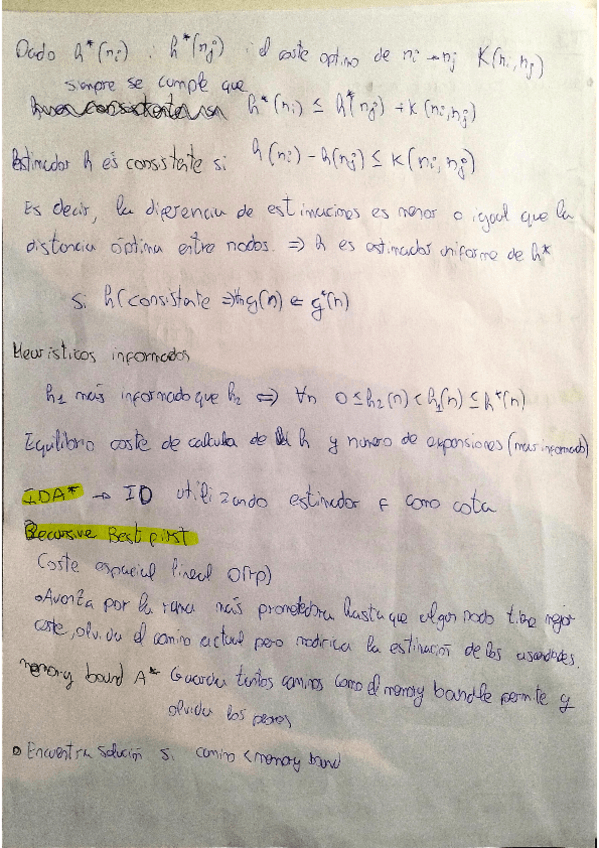 Dado h*(ni) : h*(nj) : el coste optimo de ni → nj K(ni,nj)
siempre se cumple que
h*(ni) ≤ h*(nj) + K(ni,nj)
Estimador h es consistente si h(ni) - h(nj) ≤ K(ni,nj)
Es decir, la diferencia de estimaciones es menor o igual que la
distancia óptima entre nodos. => h es estimador uniforme de h*
Si h consistente => g(n) = g*(n)
Heuristicos informados
h1 más informado que h2 <=> ∀n 0≤h2(n)<h1(n)≤h*(n)
Equilibrio coste de calculo de h y numero de expansiones (mas informado)
IDA* → ID utilizando estimador f como cota
Recursive Best first
Coste espacial lineal O(rp)
Avanza por la rama más prometedora hasta que algun nodo tiene mejor
coste, olvida el camino actual pero modifica la estimación de los
memory bound A* Guarda tantos caminos como el memory bound le permite y
olvida los peores
Encuentra solución si camino < memory bound